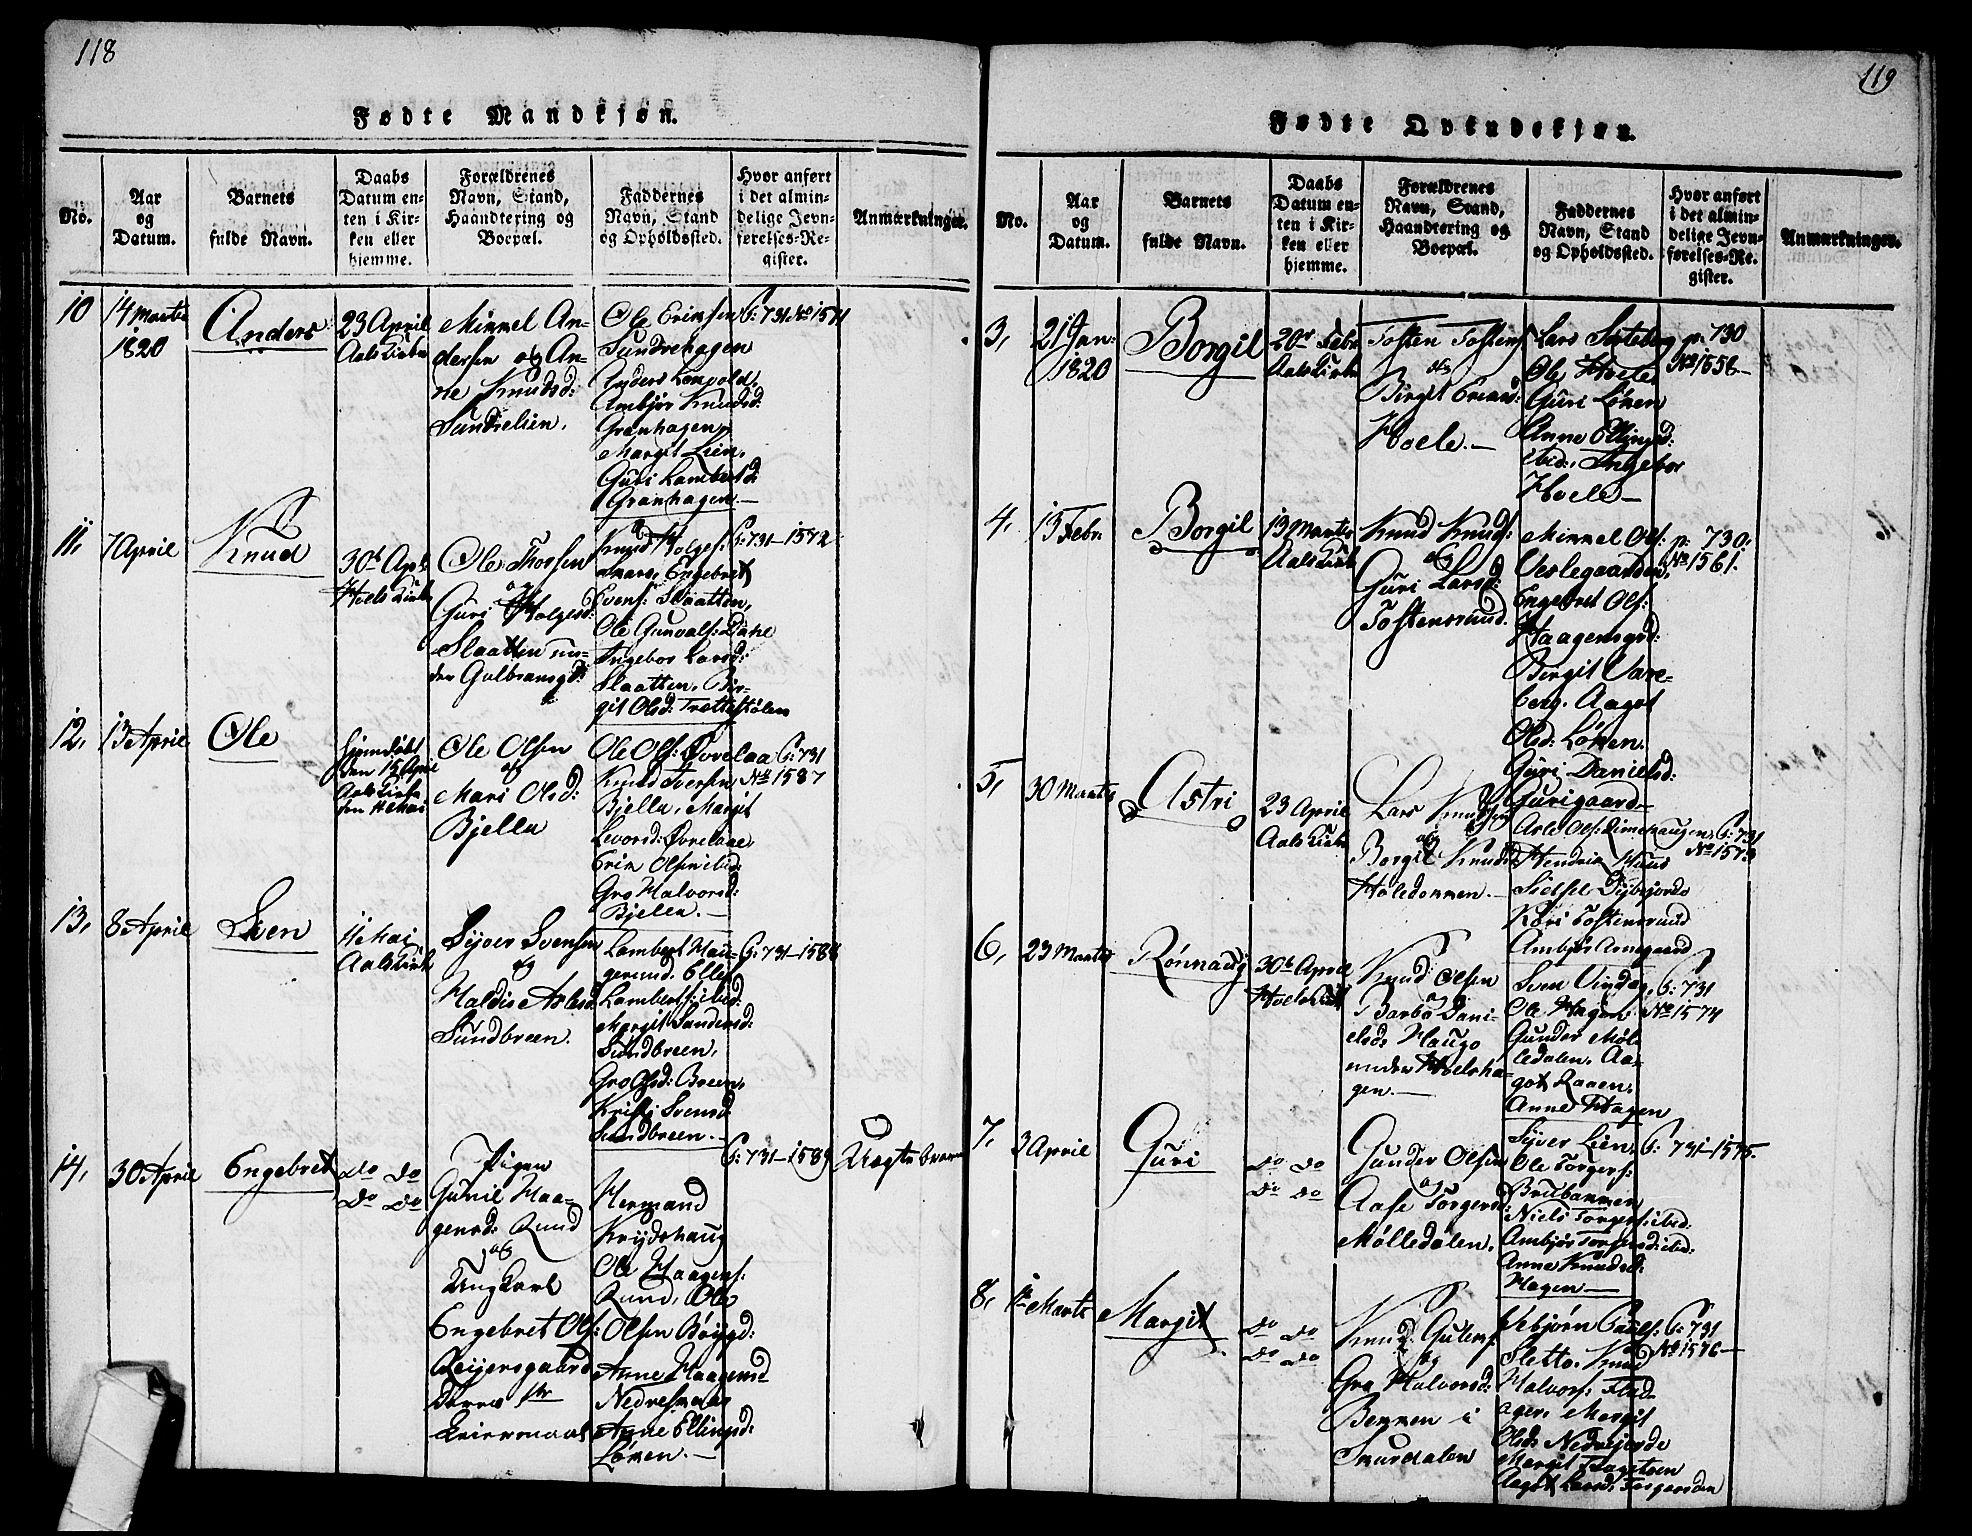 118
Fødte Mandkjøn.
No.
Aar
og
Datum.
Barnets
fulde Navn.
Daabs
Datum en-
ten i Kir-
ken eller
hjemme.
Forældrenes
Navn, Stand,
Haandtering og
Boepæl.
Faddernes
Navn, Stand
og Opholdssted.
Hvor anført
i det almin-
delige Jevn-
førelses-Re-
gister.
Anmærkninger.
10
14 Martii
1820
Anders
23 April
Aals Kirke
Mikkel An-
dersen og An-
ne Knudsd:
Sundrelien.
Ole Eriksen
Sundrehagen
Anders Leopold,
Ambjør Knudsd:
Granhagen,
Margit Lien,
Guri Lambertsd:
Granhagen.—
P: 731 No 1571
11,
7 April
Knud
30te Apr:
Hoels Kirke
Ole Thorsen
og
Guri Holgesd:
Slaatten un-
der Gulbransgd:
Knud Holges:
Engebret
Evens: Slaatten,
Ole Gunvals: Dahle
Ingebor Larsd:
Slaatten, Bir-
git Olsd: Trættestølen
P: 731-1572
12,
13 April
Ole
Hjemdøbt
den 15 April
Aals Kirke
den 11 Mai
Ole Olsen
og
Mari Olsd:
Bjella
Ole Ols: Øvrelaa
Knud Iversen
Bjella, Margit
Levorsd: Øvrelaae
Erik Olsen ibid:
Gro Halvorsd:
Bjella.—
P: 731
No 1587
13,
8 April
Sven
11 Mai
Aals Kirke
Syver Svensen
og
Haldis Aslesd:
Sundbreen.
Lambert Hau-
gerud, Elle
Lamberts: ibid:
Margit Sandersd:
Sundbreen,
Gro Olsd: Breen,
Kristi Svensd
Sundbreen.—
P: 731-1588
14,
30 April
Engebret
Do Do
Do Do
Pigen
Gunil Haa-
gensd: Ruud
og
Ungkarl
Engebret Ols:
Reijersgaard
Hermand
Krydshaug
Ole Haagens:
Ruud, Ole
Olsen Bøygd:
Anne Haagensd
Nedresmaae
Anne Ellingsd:
Løken.—
P: 731-1589
Uægte barn
119
Fødte Qvindekjøn.
No.
Aar
og
Datum.
Barnets
fulde Navn.
Daabs
Datum en-
ten i Kir-
ken eller
hjemme.
Forældrenes
Navn, Stand,
Haandtering og
Boepæl.
Faddernes
Navn, Stand
og Opholdssted.
Hvor anført
i det almin-
delige Jevn-
førelses-Re-
gister.
Anmærkninger.
3,
21 Jan:
1820
Borgil
20de Febr
Aals Kirke
Tosten Tostens:
og
Birgit Eriksd:
Hoele.—
Lars
Ole Hoele,
Guri Løken
Anne Ellingsd:
ibid:, Ingebor
Hoele—
p: 730
No 1558—
4,
13 Febr:
Borgil
13 Martii
Aals Kirke
Knud Knuds:
og
Guri Larsd:
Tostensrud.
Mikkel Ols:
Veslegaarden,
Engebret Ols:
Haagensgd:
Birgit Vare-
berg. Aagot
Olsd: Løken.
Guri Danielsd:
Gurigaard—
p: 730,
No 1561.
5,
30 Martii
Astri
23 April
Aals Kirke
Lars Knudsen
og
Borgil Knudsd
Holedokken.—
Asle Ols: Rimehaugen,
Hendrik Huus
Sidsel Dybsjords
Kari Tostensrud
Ambjør Arnegaard
P: 731
No 1573
6,
23 Martii
Rønnaug
30te April
Hoels Kirke
Knud Olsen
og
Barbo Dani-
elsd: Haugo
under Hoelsha-
gen.—
Sven Vindeg,
Ole Hagen
Gunder Møl-
ledalen, Aa-
got Raaen,
Anne Hagen
P: 731
No 1574
7,
3 April
Guri
Do Do
Do Do
Gunder Olsen
og
Aase Torgersd:
Mølledalen.
Syver Lien,
Ole Torgers:
Brubakken
Niels Torgers: ibid:
Ambjør Torgersd: ibid:
Anne Knudsd:
Hagen—
P: 731-1575.
8,
1te Martii
Margit
Do Do
Do Do
Knud Guliks:
og
Gro Halvorsd:
Bekken i
Skurdalen
Vebjørn Pauls:
Sletto. Knud
Halvors: Flad-
ager, Margit
Olsd: Nedrejorde
Aagot Larsd:
P: 731
No 1576—